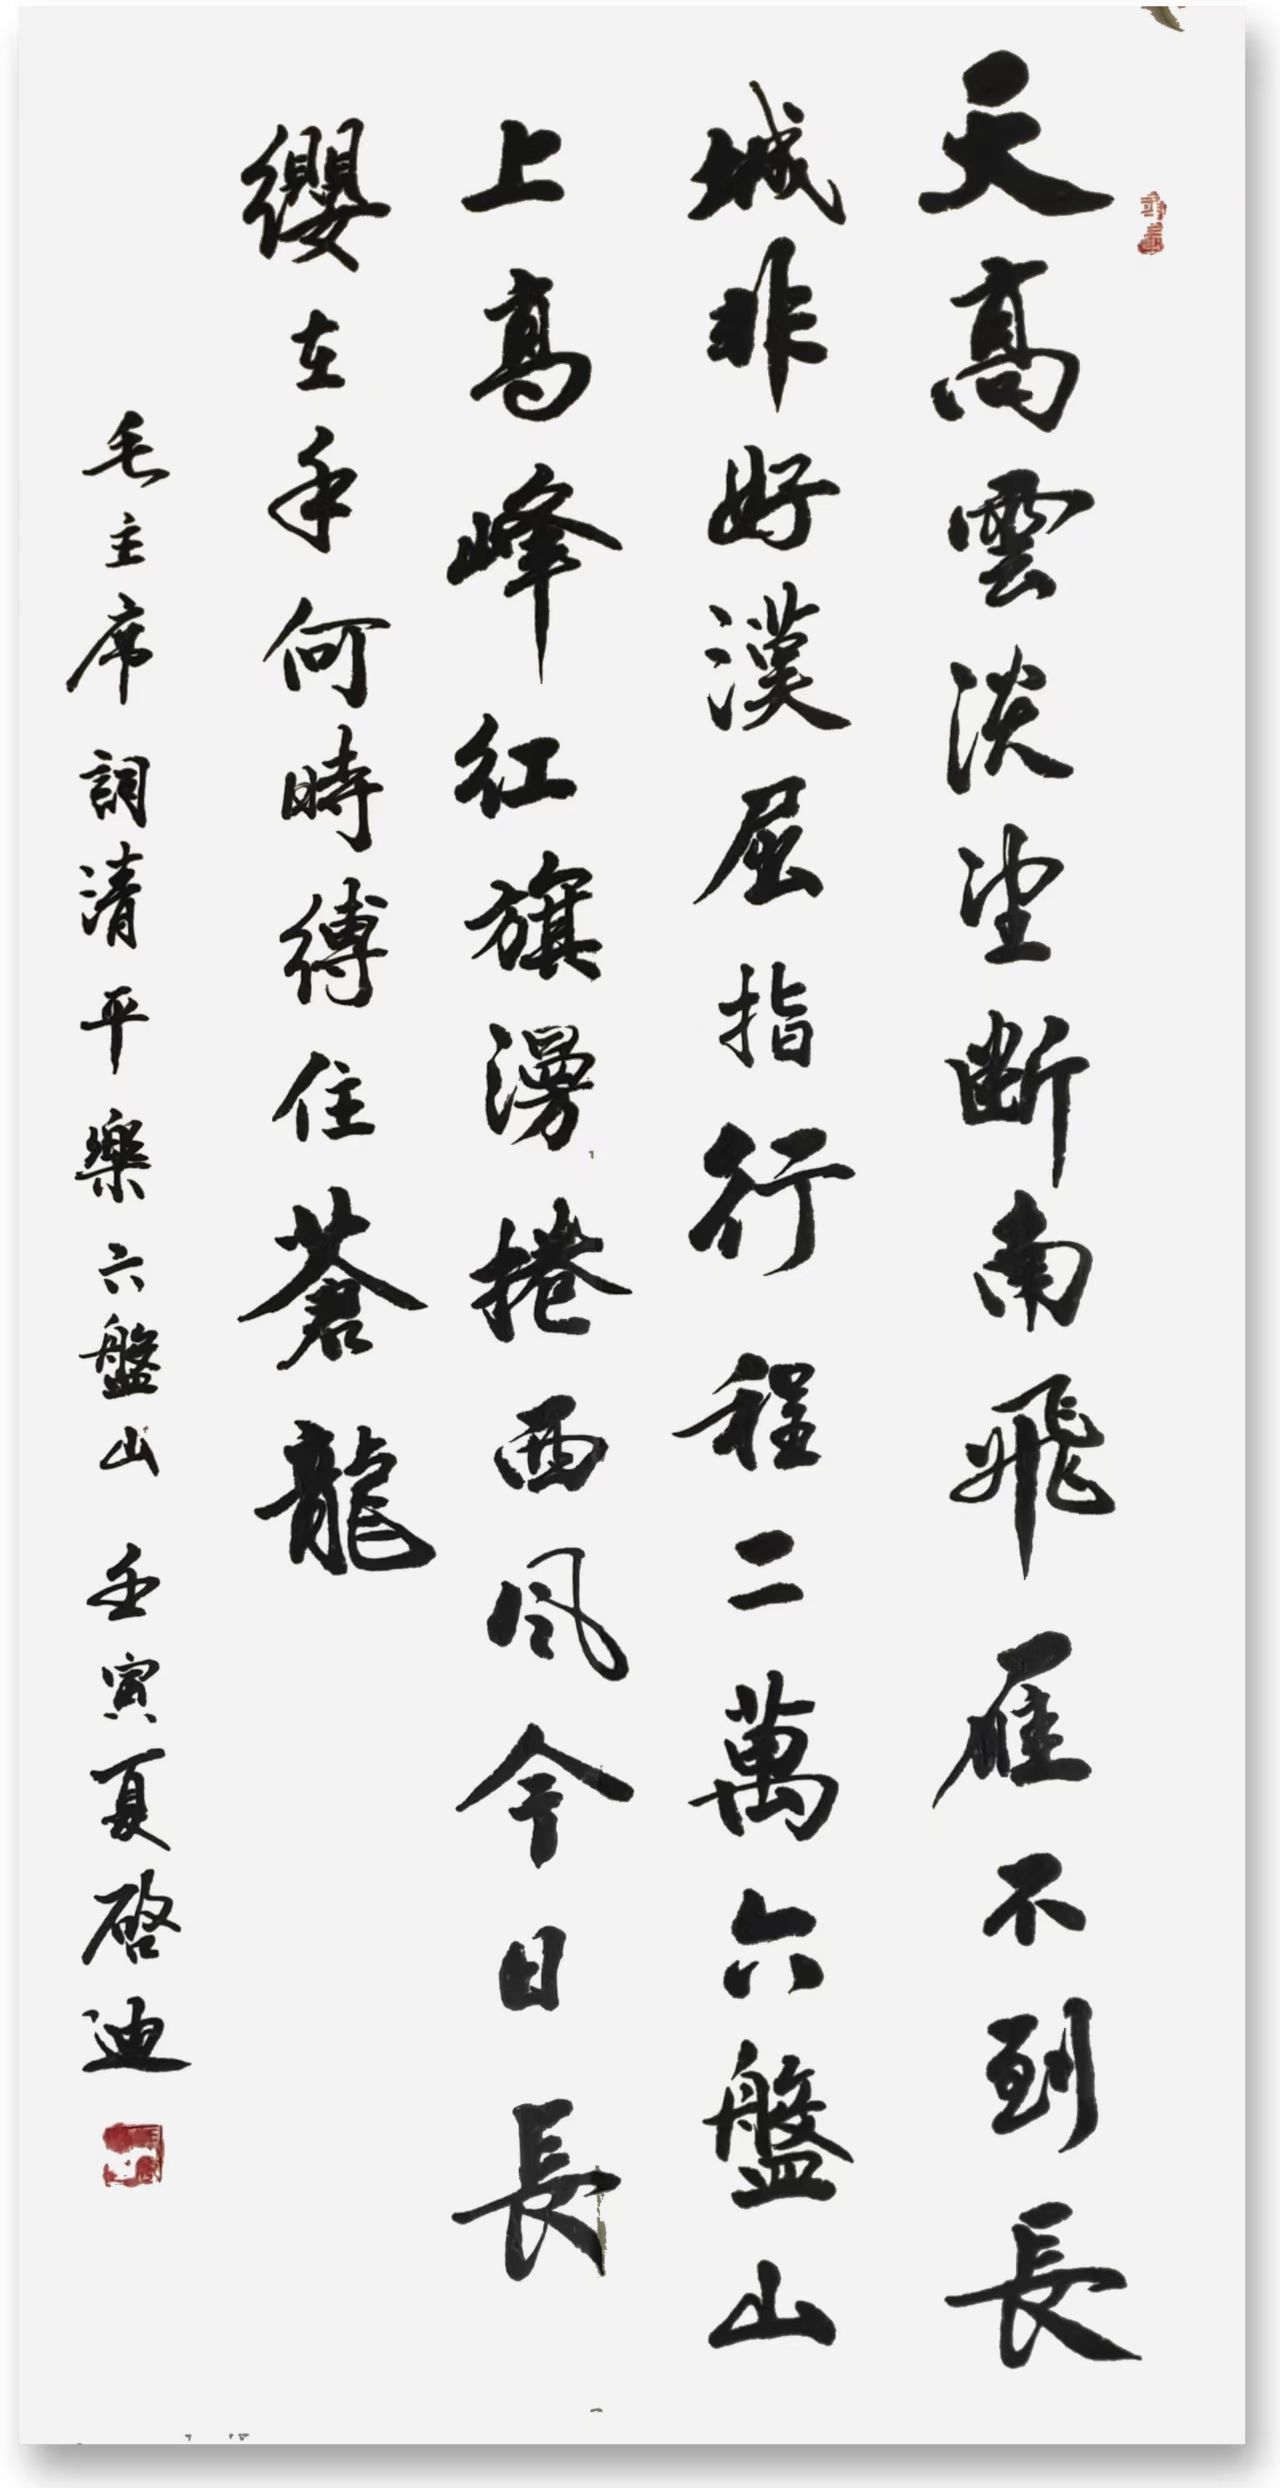 天高雲淡望断南飛雁不到長
城非好漢屈指行程二萬六盤山
上高峰紅旗漫捲西风今日長
纓在手何時縛住蒼龍
毛主席詞清平樂六盤山 壬寅夏啓迪